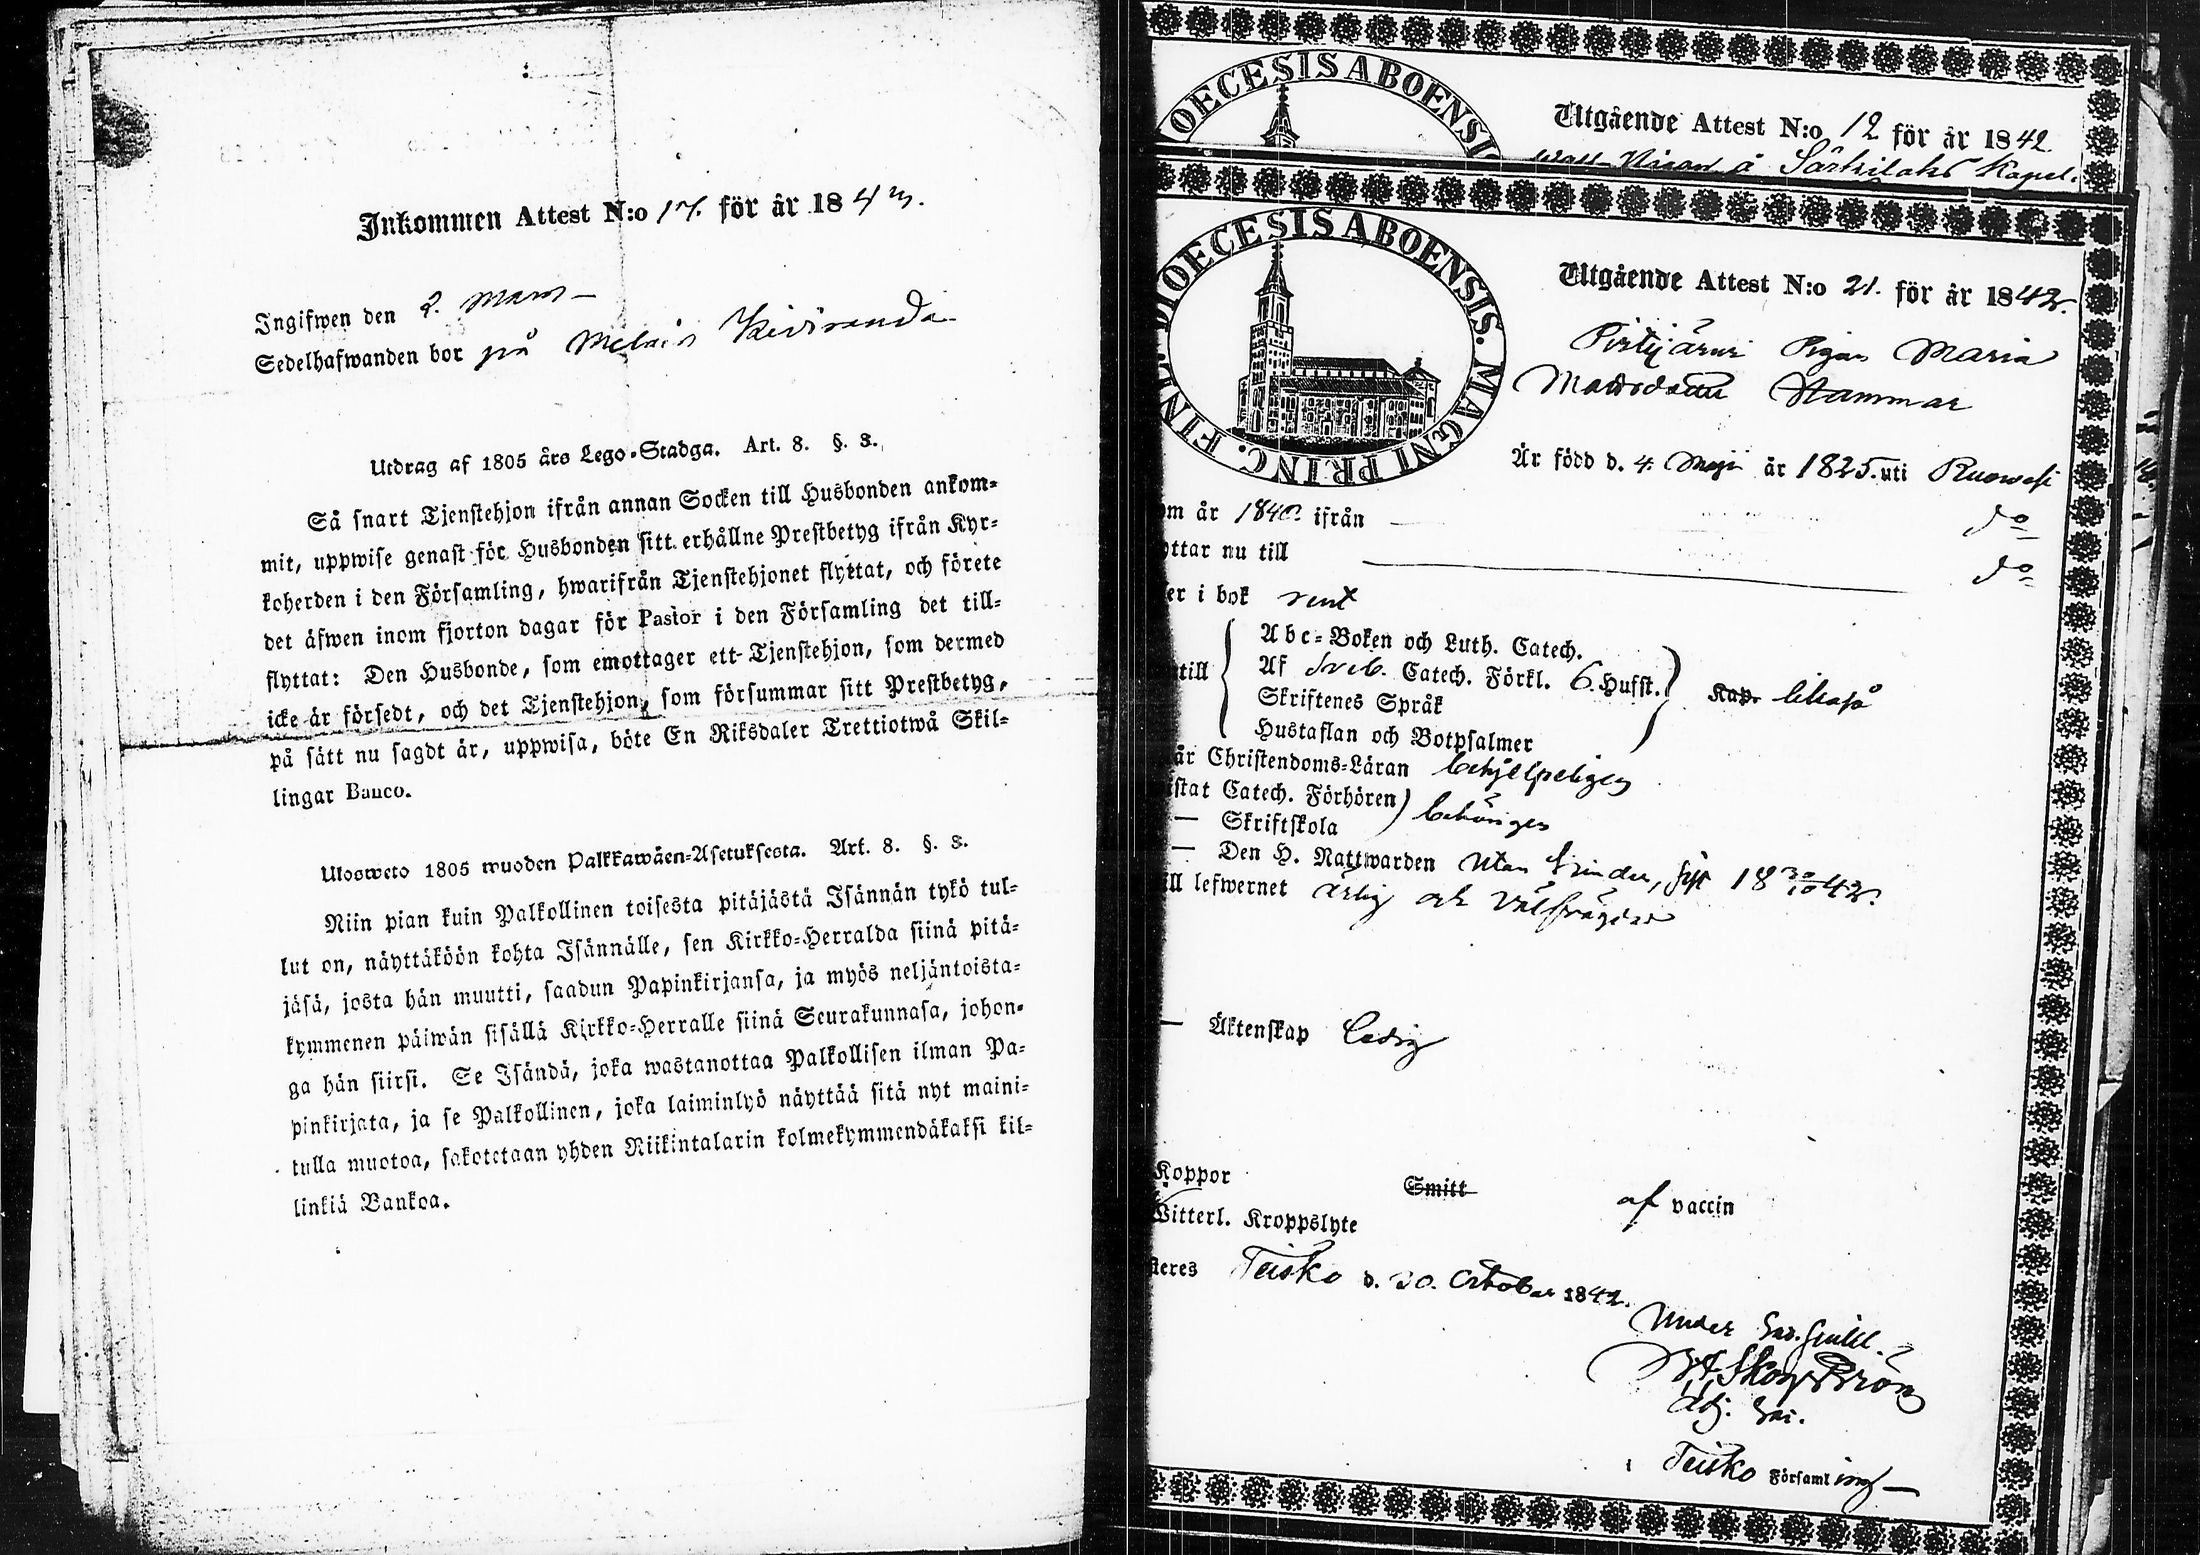 Inkommen Attest N:o 17. för år 184
Ingifwen den 2. Mars
Sedelhafwanden bor på
Utdrag af 1805 års Lego-Stadga. Art. 8. §. 3.
Så snart Tjenstehjon ifrån annan Socken till Husbonden ankom-
mit, uppwise genast för Husbonden sitt erhållne Prestbetyg ifrån Kyr-
koherden i den Församling, hwarifrån Tjenstehjonet flyttat, och förete
det äfwen inom fjorton dagar för Pastor i den Församling det till-
flyttat: Den Husbonde, som emottager ett Tjenstehjon, som dermed
icke är försedt, och det Tjenstehjon, som försummar sitt Prestbetyg,
på sätt nu sagdt är, uppwisa, böte En Riksdaler Trettiotwå Skil-
lingar Banco.
Ulosweto 1805 wuoden Palkkawäen-Asetuksesta. Art. 8. §. 3.
Niin pian kuin Palkollinen toisesta pitäjästä Isännän tykö tul-
lut on, näyttäköön kohta Isännälle, sen Kirkko-Herralda siinä pitä-
jäsä, josta hän muutti, saadun Papinkirjansa, ja myös neljäntoista-
kymmenen päiwän sisällä Kirkko-Herralle siinä Seurakunnasa, johon-
ga hän siirsi. Se Isändä, joka wastanottaa Palkollisen ilman Pa-
pinkirjata, ja se Palkollinen, joka laiminlyö näyttää sitä nyt maini-
tulla muotoa, sakotetaan yhden Riikintalarin kolmekymmendäkaksi kil-
linkiä Bankoa.
OECESIS ABOENSI
Utgående Attest N:o 12 för år 1842
å Särkilaks Kapel.
DIOECESIS ABOENSIS. MAGNI PRINC. FINL.
Utgående Attest N:o 21. för år 1842.
Pigan Maria
Stammar
Är född d. 4. Maji år 1825. uti Ruowesi
om år 1840. ifrån — do
ottar nu till do
er i bok rent
Abc-Boken och Luth. Catech.
till Af Sveb. Catech. Förkl. 6. Hufst. Kap.
Skriftenes Språk
Hustaflan och Botpsalmer
år Christendoms-Läran behjelpeligen
istat Catech. Förhören
— Skriftskola behörigen
— Den H. Nattwarden utan hinder, sist 18 30/10 42.
ill lefwernet ärlig och välfrägdad
— Äktenskap ledig
Koppor Smitt af vaccin
Witterl. Kroppslyte
steres Teisko d. 30. October 1842.
Under
Skogström
Adj.
i Teisko Församling